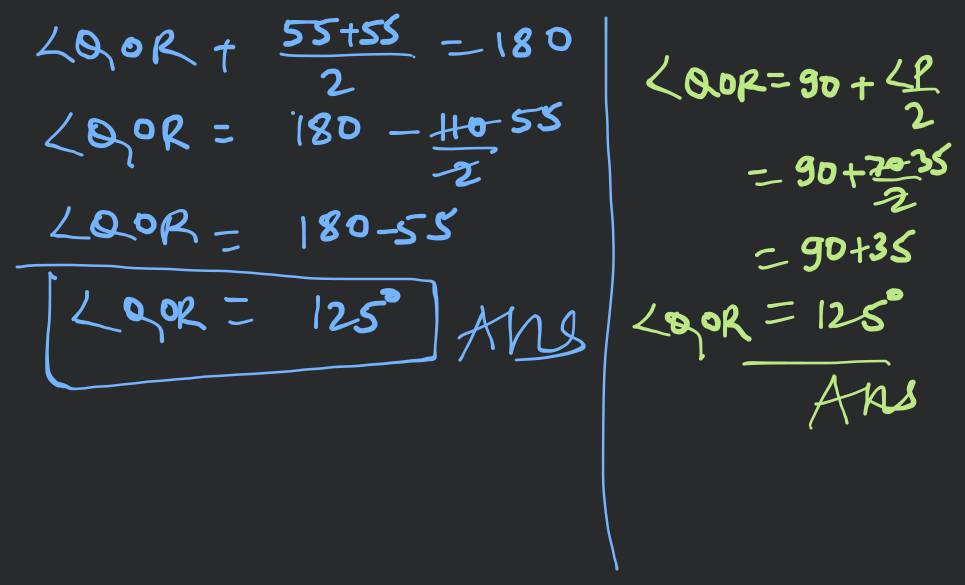 ∠QOR + 55+55/2 = 180
∠QOR = 180 - 110/2 55
∠QOR = 180-55
∠QOR = 125° Ans
∠QOR = 90 + ∠P/2
= 90 + 70/2 35
= 90+35
∠QOR = 125°
Ans